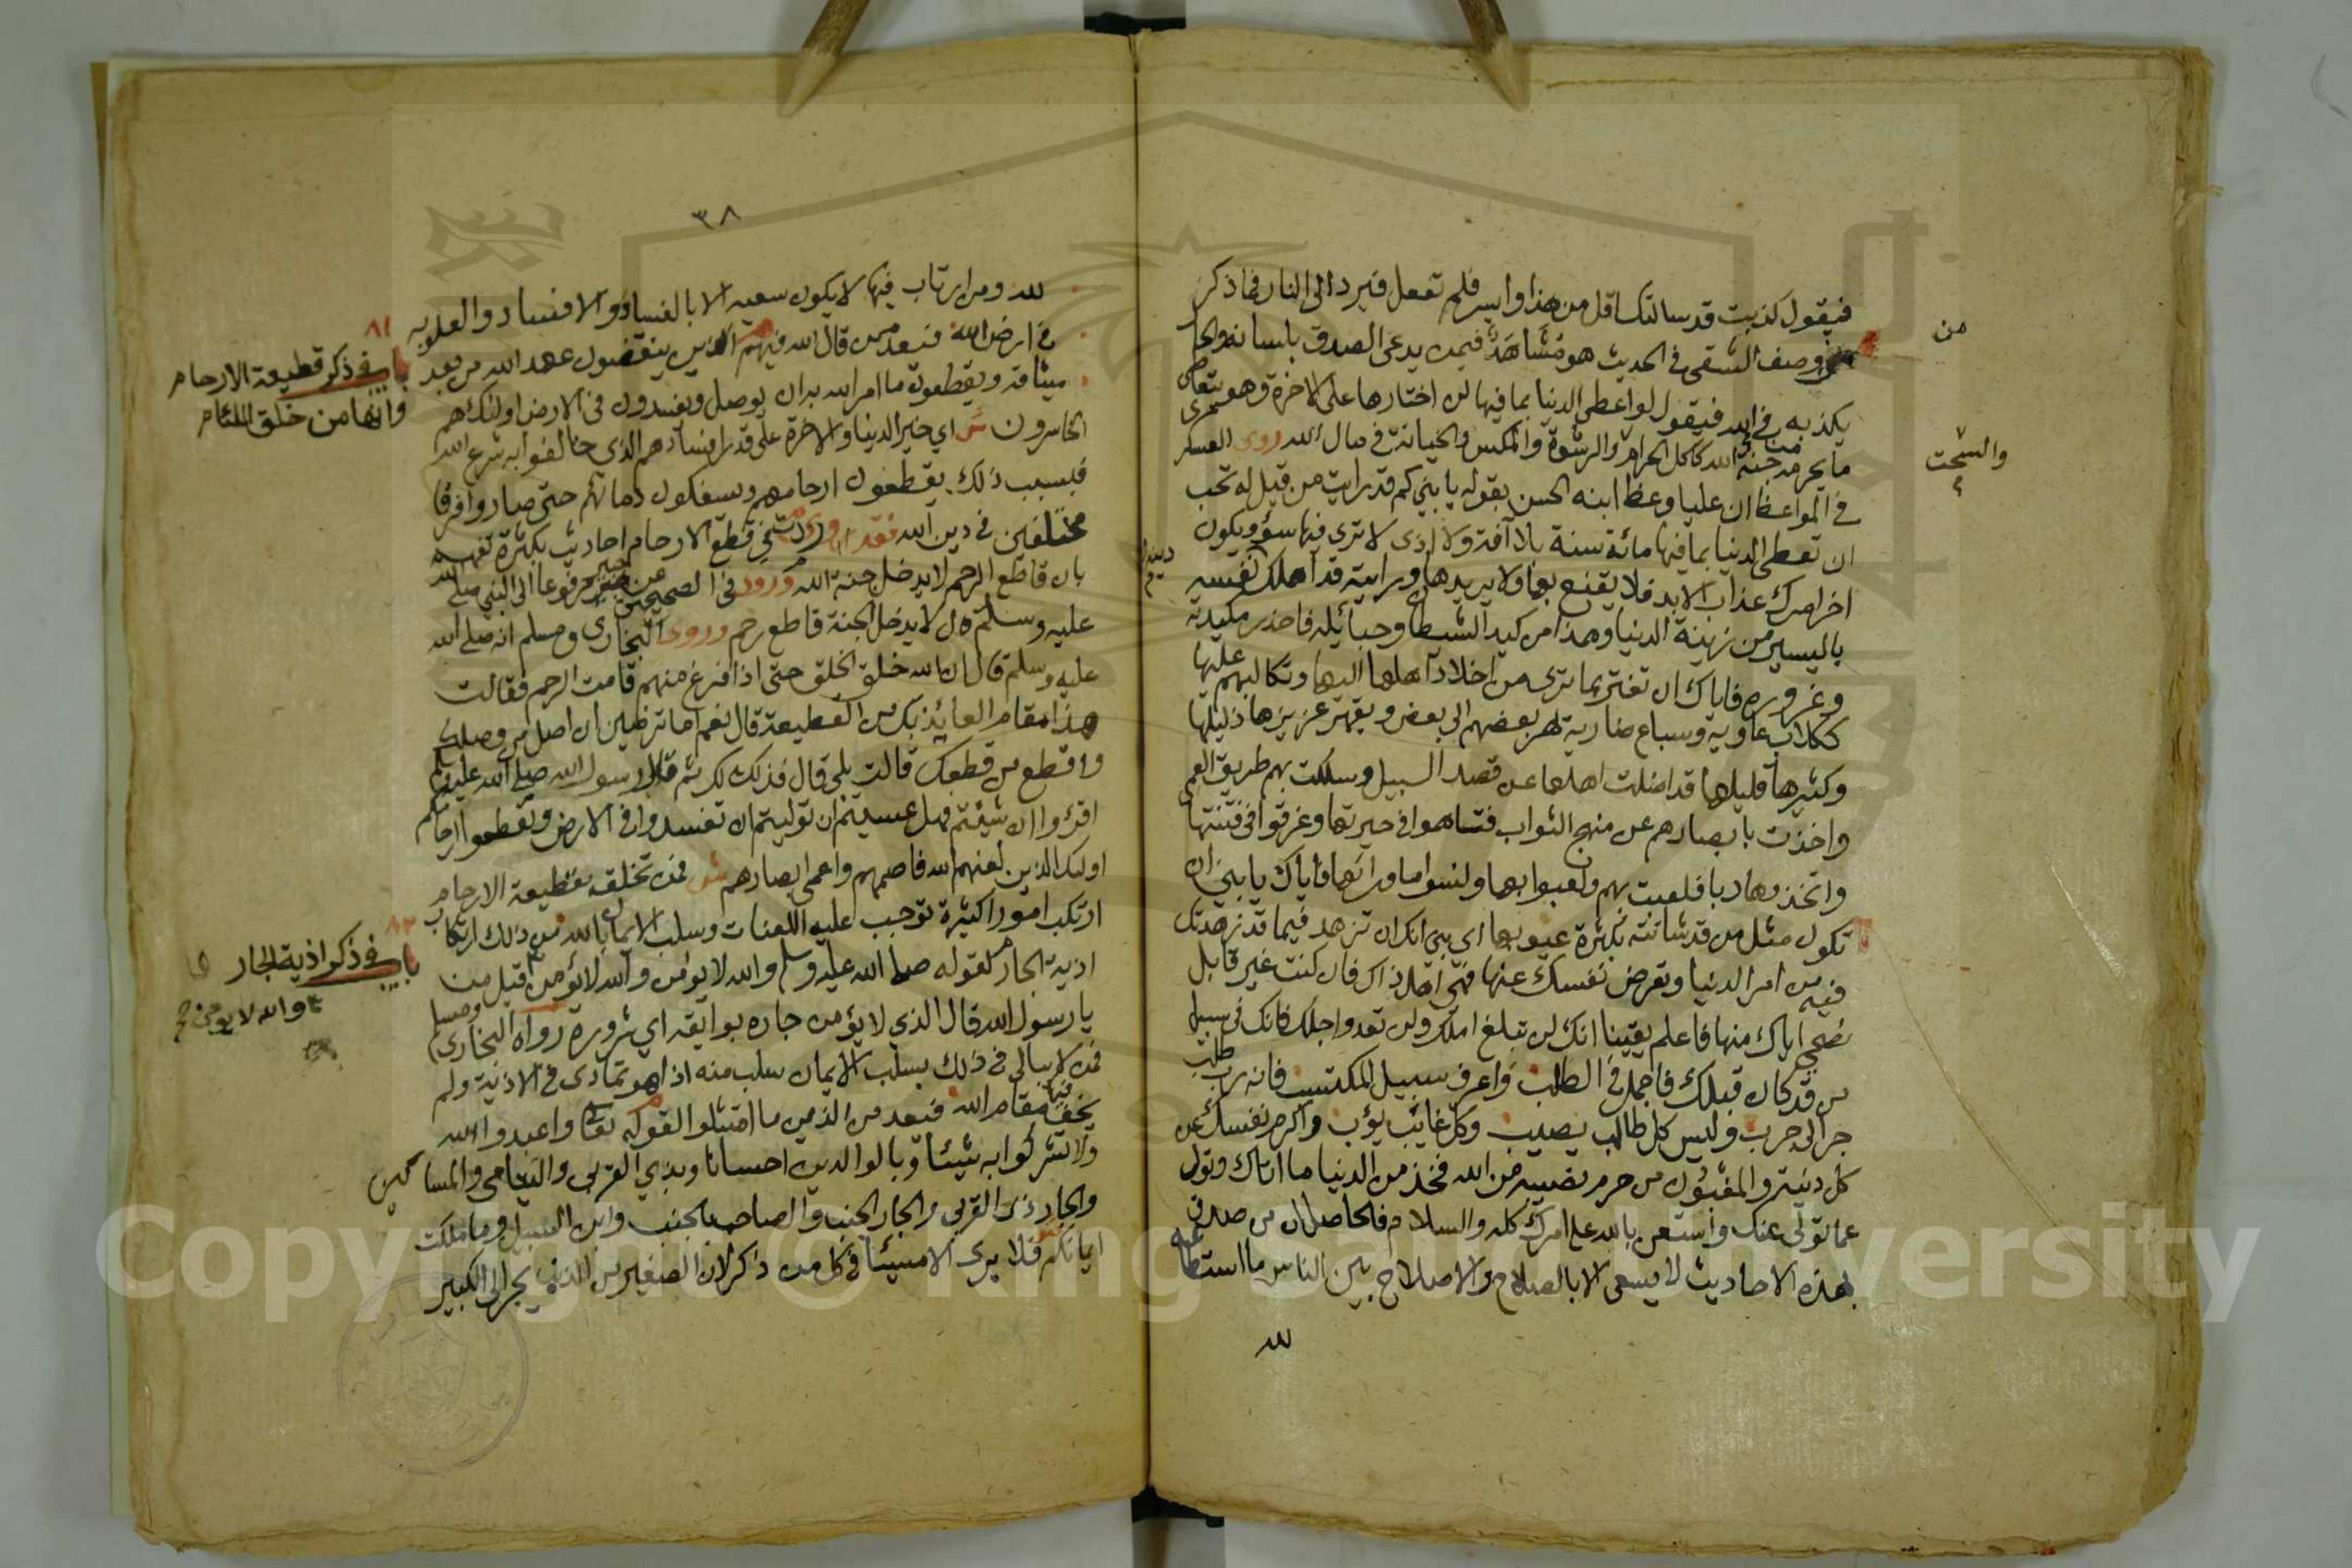 فيقول كذبت قد سالتك اقل من هذا وايسر فلم تفعل فيرد الى النار فما ذكر
من
وصف الشقي في الحديث هو مشاهد فيمن يدعي الصدق بلسانه والحا
يكذبه في الله فيقول لو اعطي الدنيا بما فيها لن اختارها على الاخرة وهو يتعاطى
ما يحرمه جنة الله كاكل الحرام والرشوة والمكس والخيانة في مال الله روى العسكري
والسحت
في المواعظ ان عليا وعظ ابنه الحسن بقوله يا بني كم قد رايت من قيل له تحب
ان تعطى الدنيا بما فيها مائة سنة بلا آفة ولا اذى لا ترى فيها سؤ ويكون
اخر امرك عذاب الابد فلا يقنع بها ولا يريدها ورايته قد اهلك نفسه
دينه
باليسير من زينة الدنيا وهذا من كيد الشيطان وحبائله فاحذر مكيدته
وغروره فاياك ان تغتر بما ترى من اخلاد اهلها اليها وتكالبهم عليها
ككلاب عاوية وسباع ضارية يهر بعضهم الى بعض ويقهر عزيزها ذليلها
وكثيرها قليلها قد اضلت اهلها عن قصد السبيل وسلكت بهم طريق العمى
واخذت بابصارهم عن منهج الثواب فتاهوا في حيرتها وغرقوا في فتنتها
واتخذوها ربا فلعبت بهم ولعبوا بها ونسوا ما وراءها فاياك يا بني ان
تكون مثل من قد شانته بكثرة عيوبها اي بني انك ان تزهد فيما قد زهدتك
فيه من امر الدنيا وتعرض نفسك عنها فهي اهل ذاك فان كنت غير قابل
نصحي اياك منها فاعلم يقينا انك لن تبلغ املك ولن تعدو اجلك فانك في سبيل
من قد كان قبلك فاجمل في الطلب واعرف سبيل المكتسب فانه رب طلب
جر الى حرب وليس كل طالب يصيب وكل غائب يؤب واكرم نفسك عن
كل دنية والمغبون من حرم نصيبه من الله فخذ من الدنيا ما اتاك وتول
عما تولى عنك واستعن بالله على امرك كله والسلام فالحاصل ان من صدق
بهذه الاحاديث لا يسعى الا بالصلاح والاصلاح بين الناس ما استطا
لله
٣٨
لله ومن ارتاب فيها لا يكون سعيه الا بالفساد والافساد والعلو به
في ارض الله فيعد ممن قال الله فيهم الذين ينقضون عهد الله من بعد
ميثاقه ويقطعون ما امر الله به ان يوصل ويفسدون في الارض اولئك هم
٨١
باب في ذكر قطيعة الارحام
وانها من خلق اللئام
الخاسرون ش اي خير الدنيا والاخرة على قدر افسادهم الذي خالفوا به شرع الله
فبسبب ذلك يقطعون ارحامهم ويسفكون دماءهم حتى صاروا فرقا
مختلفين في دين الله فقد وردت في قطع الارحام احاديث بكثرة
بان قاطع الرحم لا يدخل جنة الله وورد في الصحيحين عن جبير مرفوعا الى النبي صلى الله
عليه وسلم قال لا يدخل الجنة قاطع رحم وروى البخاري ومسلم انه صلى الله
عليه وسلم قال ان الله خلق الخلق حتى اذا فرغ منهم قامت الرحم فقالت
هذا مقام العائذ بك من القطيعة قال نعم اما ترضين ان اصل من وصلك
واقطع من قطعك قالت بلى قال فذلك لك ثم قال رسول الله صلى الله عليه وسلم
اقرؤا ان شئتم فهل عسيتم ان توليتم ان تفسدوا في الارض وتقطعوا ارحامكم
اولئك الذين لعنهم الله فاصمهم واعمى ابصارهم ش فمن تخلق بقطيعة الارحام
ارتكب امورا كثيرة توجب عليه اللعنات وسلب الايمان بالله فمن ذلك ارتكاب
٨٢
باب في ذكر اذية الجار
اذية الجار لقوله صلى الله عليه وسلم والله لا يؤمن والله لا يؤمن قيل من
والله لا يؤمن صح
يا رسول الله قال الذي لا يؤمن جاره بوايقه اي شروره رواه البخاري ومسلم
فمن لا يبالي في ذلك بسلب الايمان سلب منه اذا هو تمادى في الاذية ولم
يخف فيها مقام الله فيعد من الذين ما امتثلوا لقوله تعالى واعبدوا الله
ولا تشركوا به شيئا وبالوالدين احسانا وبذي القربى واليتامى والمساكين
والجار ذي القربى والجار الجنب والصاحب بالجنب وابن السبيل وما ملكت
ايمانكم فلا يرى الا مسيئا في كل من ذكر لان الصغير من الذنب يجر الى الكبير
Copyright © King Saud University